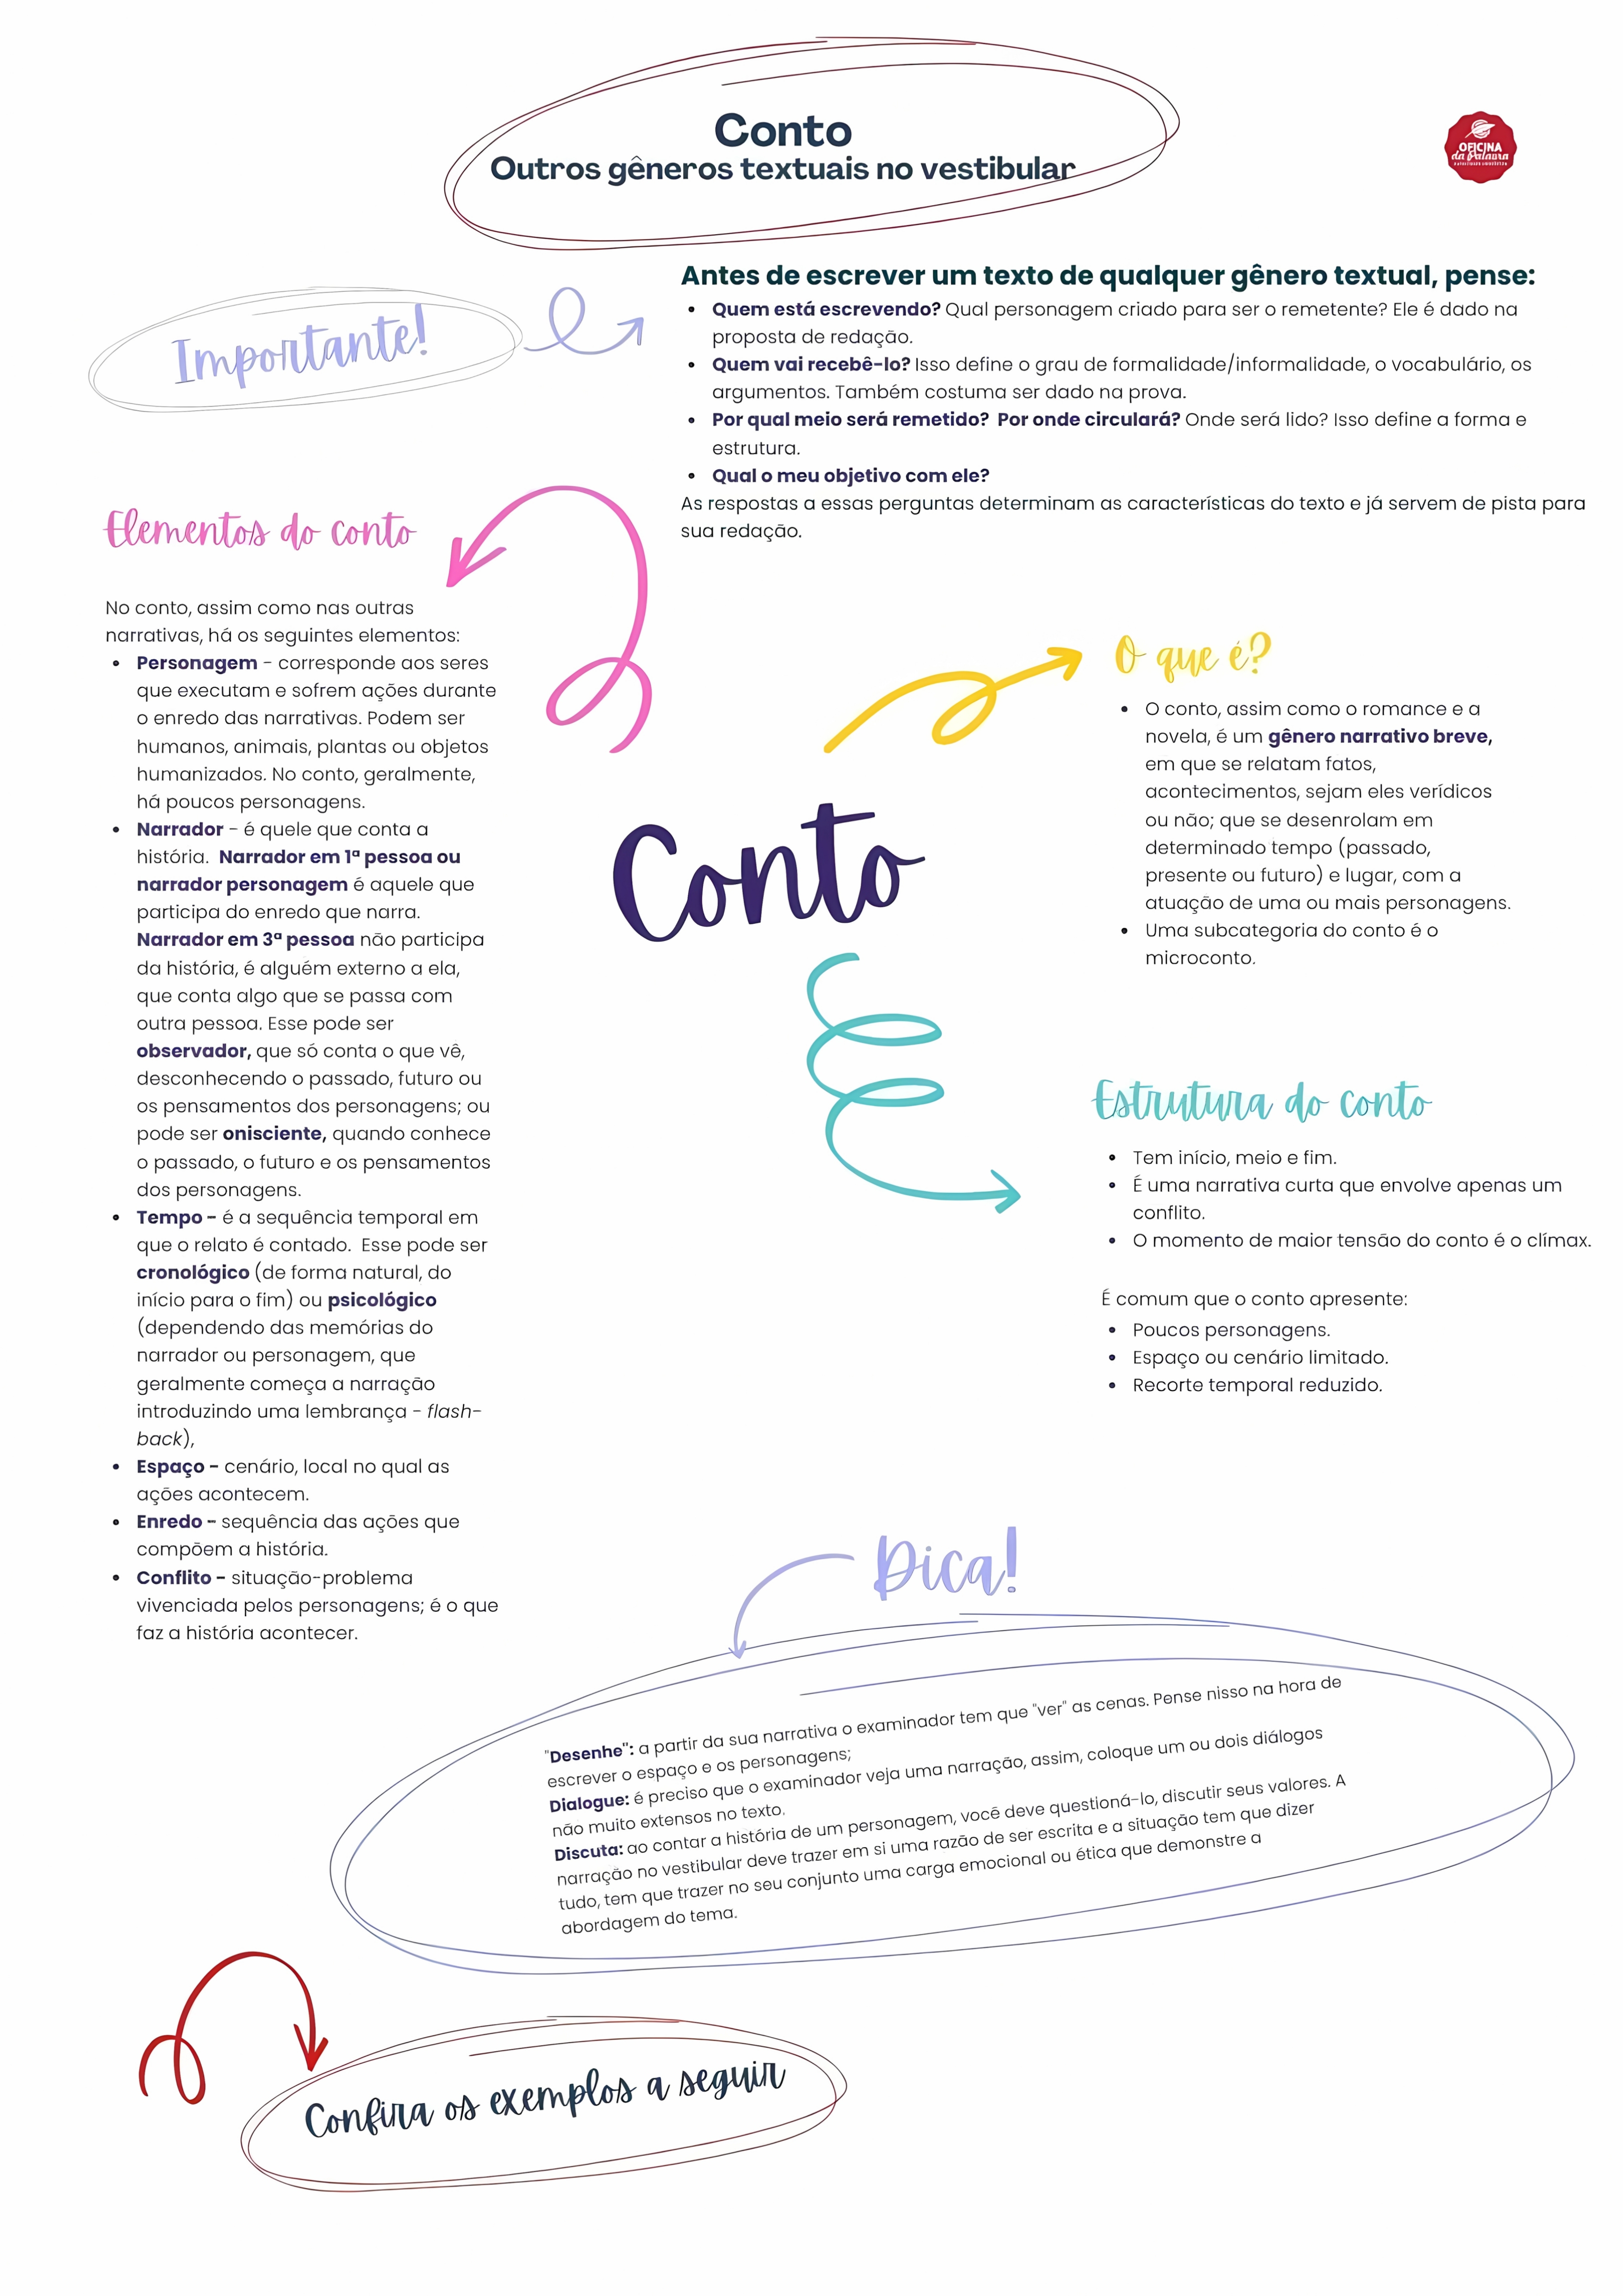 Conto
Outros gêneros textuais no vestibular
OFICINA
da Palavra
Importante!
Antes de escrever um texto de qualquer gênero textual, pense:
• Quem está escrevendo? Qual personagem criado para ser o remetente? Ele é dado na
proposta de redação.
• Quem vai recebê-lo? Isso define o grau de formalidade/informalidade, o vocabulário, os
argumentos. Também costuma ser dado na prova.
• Por qual meio será remetido? Por onde circulará? Onde será lido? Isso define a forma e
estrutura.
• Qual o meu objetivo com ele?
As respostas a essas perguntas determinam as características do texto e já servem de pista para
sua redação.
Elementos do conto
No conto, assim como nas outras
narrativas, há os seguintes elementos:
• Personagem - corresponde aos seres
que executam e sofrem ações durante
o enredo das narrativas. Podem ser
humanos, animais, plantas ou objetos
humanizados. No conto, geralmente,
há poucos personagens.
• Narrador - é quele que conta a
história. Narrador em 1ª pessoa ou
narrador personagem é aquele que
participa do enredo que narra.
Narrador em 3ª pessoa não participa
da história, é alguém externo a ela,
que conta algo que se passa com
outra pessoa. Esse pode ser
observador, que só conta o que vê,
desconhecendo o passado, futuro ou
os pensamentos dos personagens; ou
pode ser onisciente, quando conhece
o passado, o futuro e os pensamentos
dos personagens.
• Tempo - é a sequência temporal em
que o relato é contado. Esse pode ser
cronológico (de forma natural, do
início para o fim) ou psicológico
(dependendo das memórias do
narrador ou personagem, que
geralmente começa a narração
introduzindo uma lembrança - flash-
back),
• Espaço - cenário, local no qual as
ações acontecem.
• Enredo - sequência das ações que
compõem a história.
• Conflito - situação-problema
vivenciada pelos personagens; é o que
faz a história acontecer.
Conto
O que é?
• O conto, assim como o romance e a
novela, é um gênero narrativo breve,
em que se relatam fatos,
acontecimentos, sejam eles verídicos
ou não; que se desenrolam em
determinado tempo (passado,
presente ou futuro) e lugar, com a
atuação de uma ou mais personagens.
• Uma subcategoria do conto é o
microconto.
Estrutura do conto
• Tem início, meio e fim.
• É uma narrativa curta que envolve apenas um
conflito.
• O momento de maior tensão do conto é o clímax.
É comum que o conto apresente:
• Poucos personagens.
• Espaço ou cenário limitado.
• Recorte temporal reduzido.
Dica!
"Desenhe": a partir da sua narrativa o examinador tem que "ver" as cenas. Pense nisso na hora de
escrever o espaço e os personagens;
Dialogue: é preciso que o examinador veja uma narração, assim, coloque um ou dois diálogos
não muito extensos no texto.
Discuta: ao contar a história de um personagem, você deve questioná-lo, discutir seus valores. A
narração no vestibular deve trazer em si uma razão de ser escrita e a situação tem que dizer
tudo, tem que trazer no seu conjunto uma carga emocional ou ética que demonstre a
abordagem do tema.
Confira os exemplos a seguir